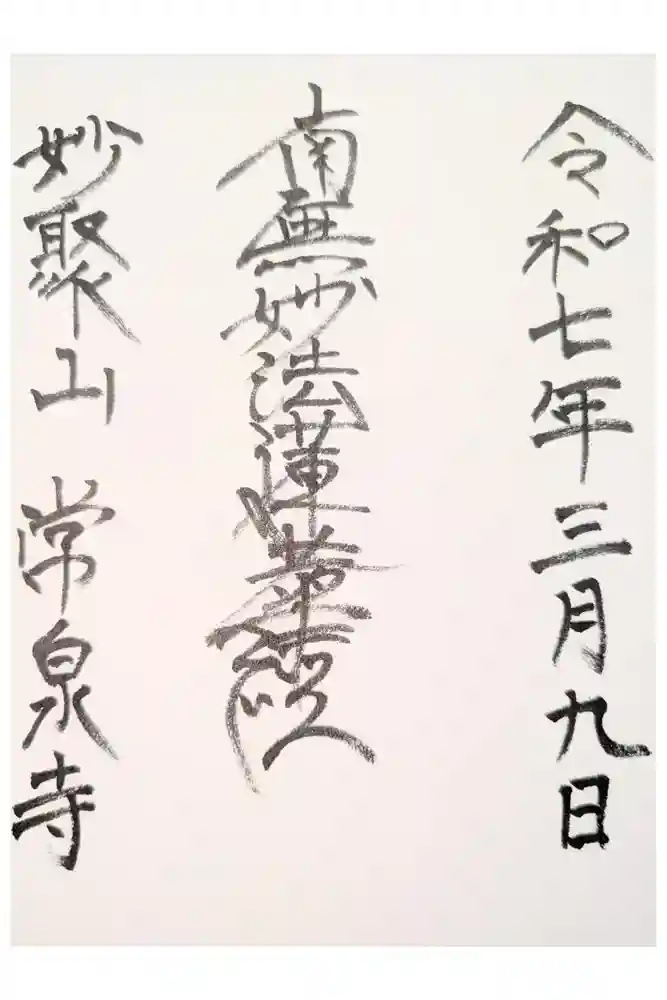 令和七年三月九日
南無妙法蓮華経
妙聚山 常泉寺